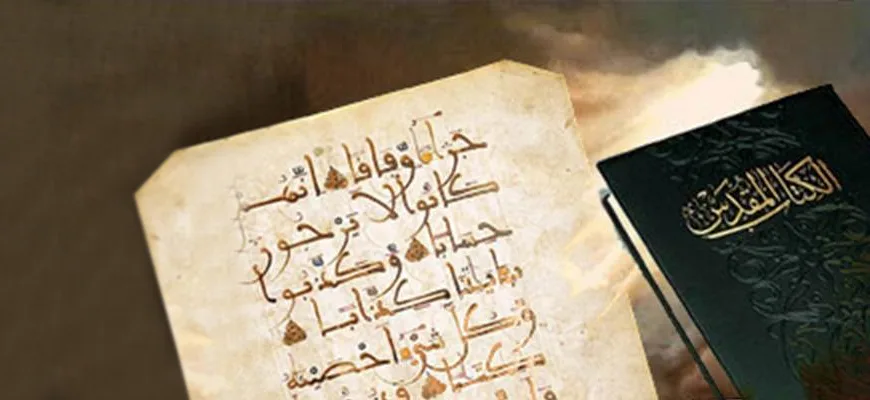 جَزَآءً وِّفَاقًا اِنَّهُمْ
كَانُوا لَا يَرْجُونَ
حِسَابًا وَكَذَّبُوا
بِـَٔايَٰتِنَا كِذَّابًا
وَكُلَّ شَيْءٍ اَحْصَيْنَٰهُ
كِتَٰبًا
الكتاب المقدس